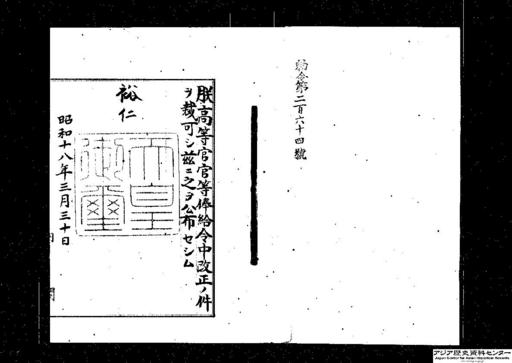 勅令第二百六十四號
朕高等官官等俸給令中改正ノ件
ヲ裁可シ茲ニ之ヲ公布セシム
裕仁
天皇
御璽
昭和十八年三月三十日
アジア歴史資料センター
Japan Center for Asian Historical Records